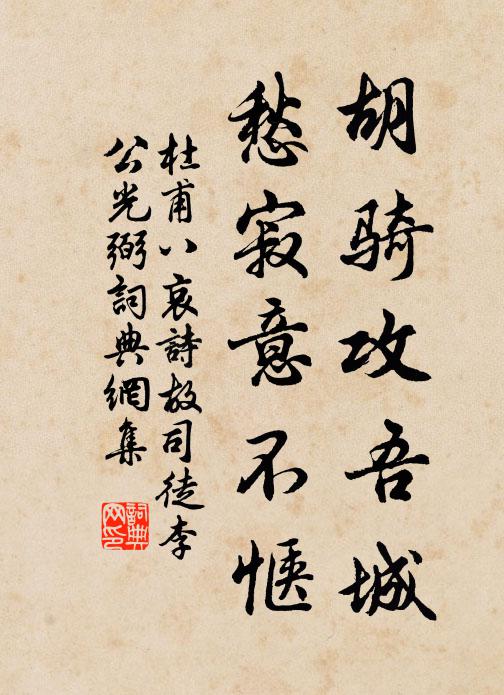 胡骑攻吾城
愁寂意不惬
杜甫八哀詩故司徒李
公光弼詞典網集
詞典
网印